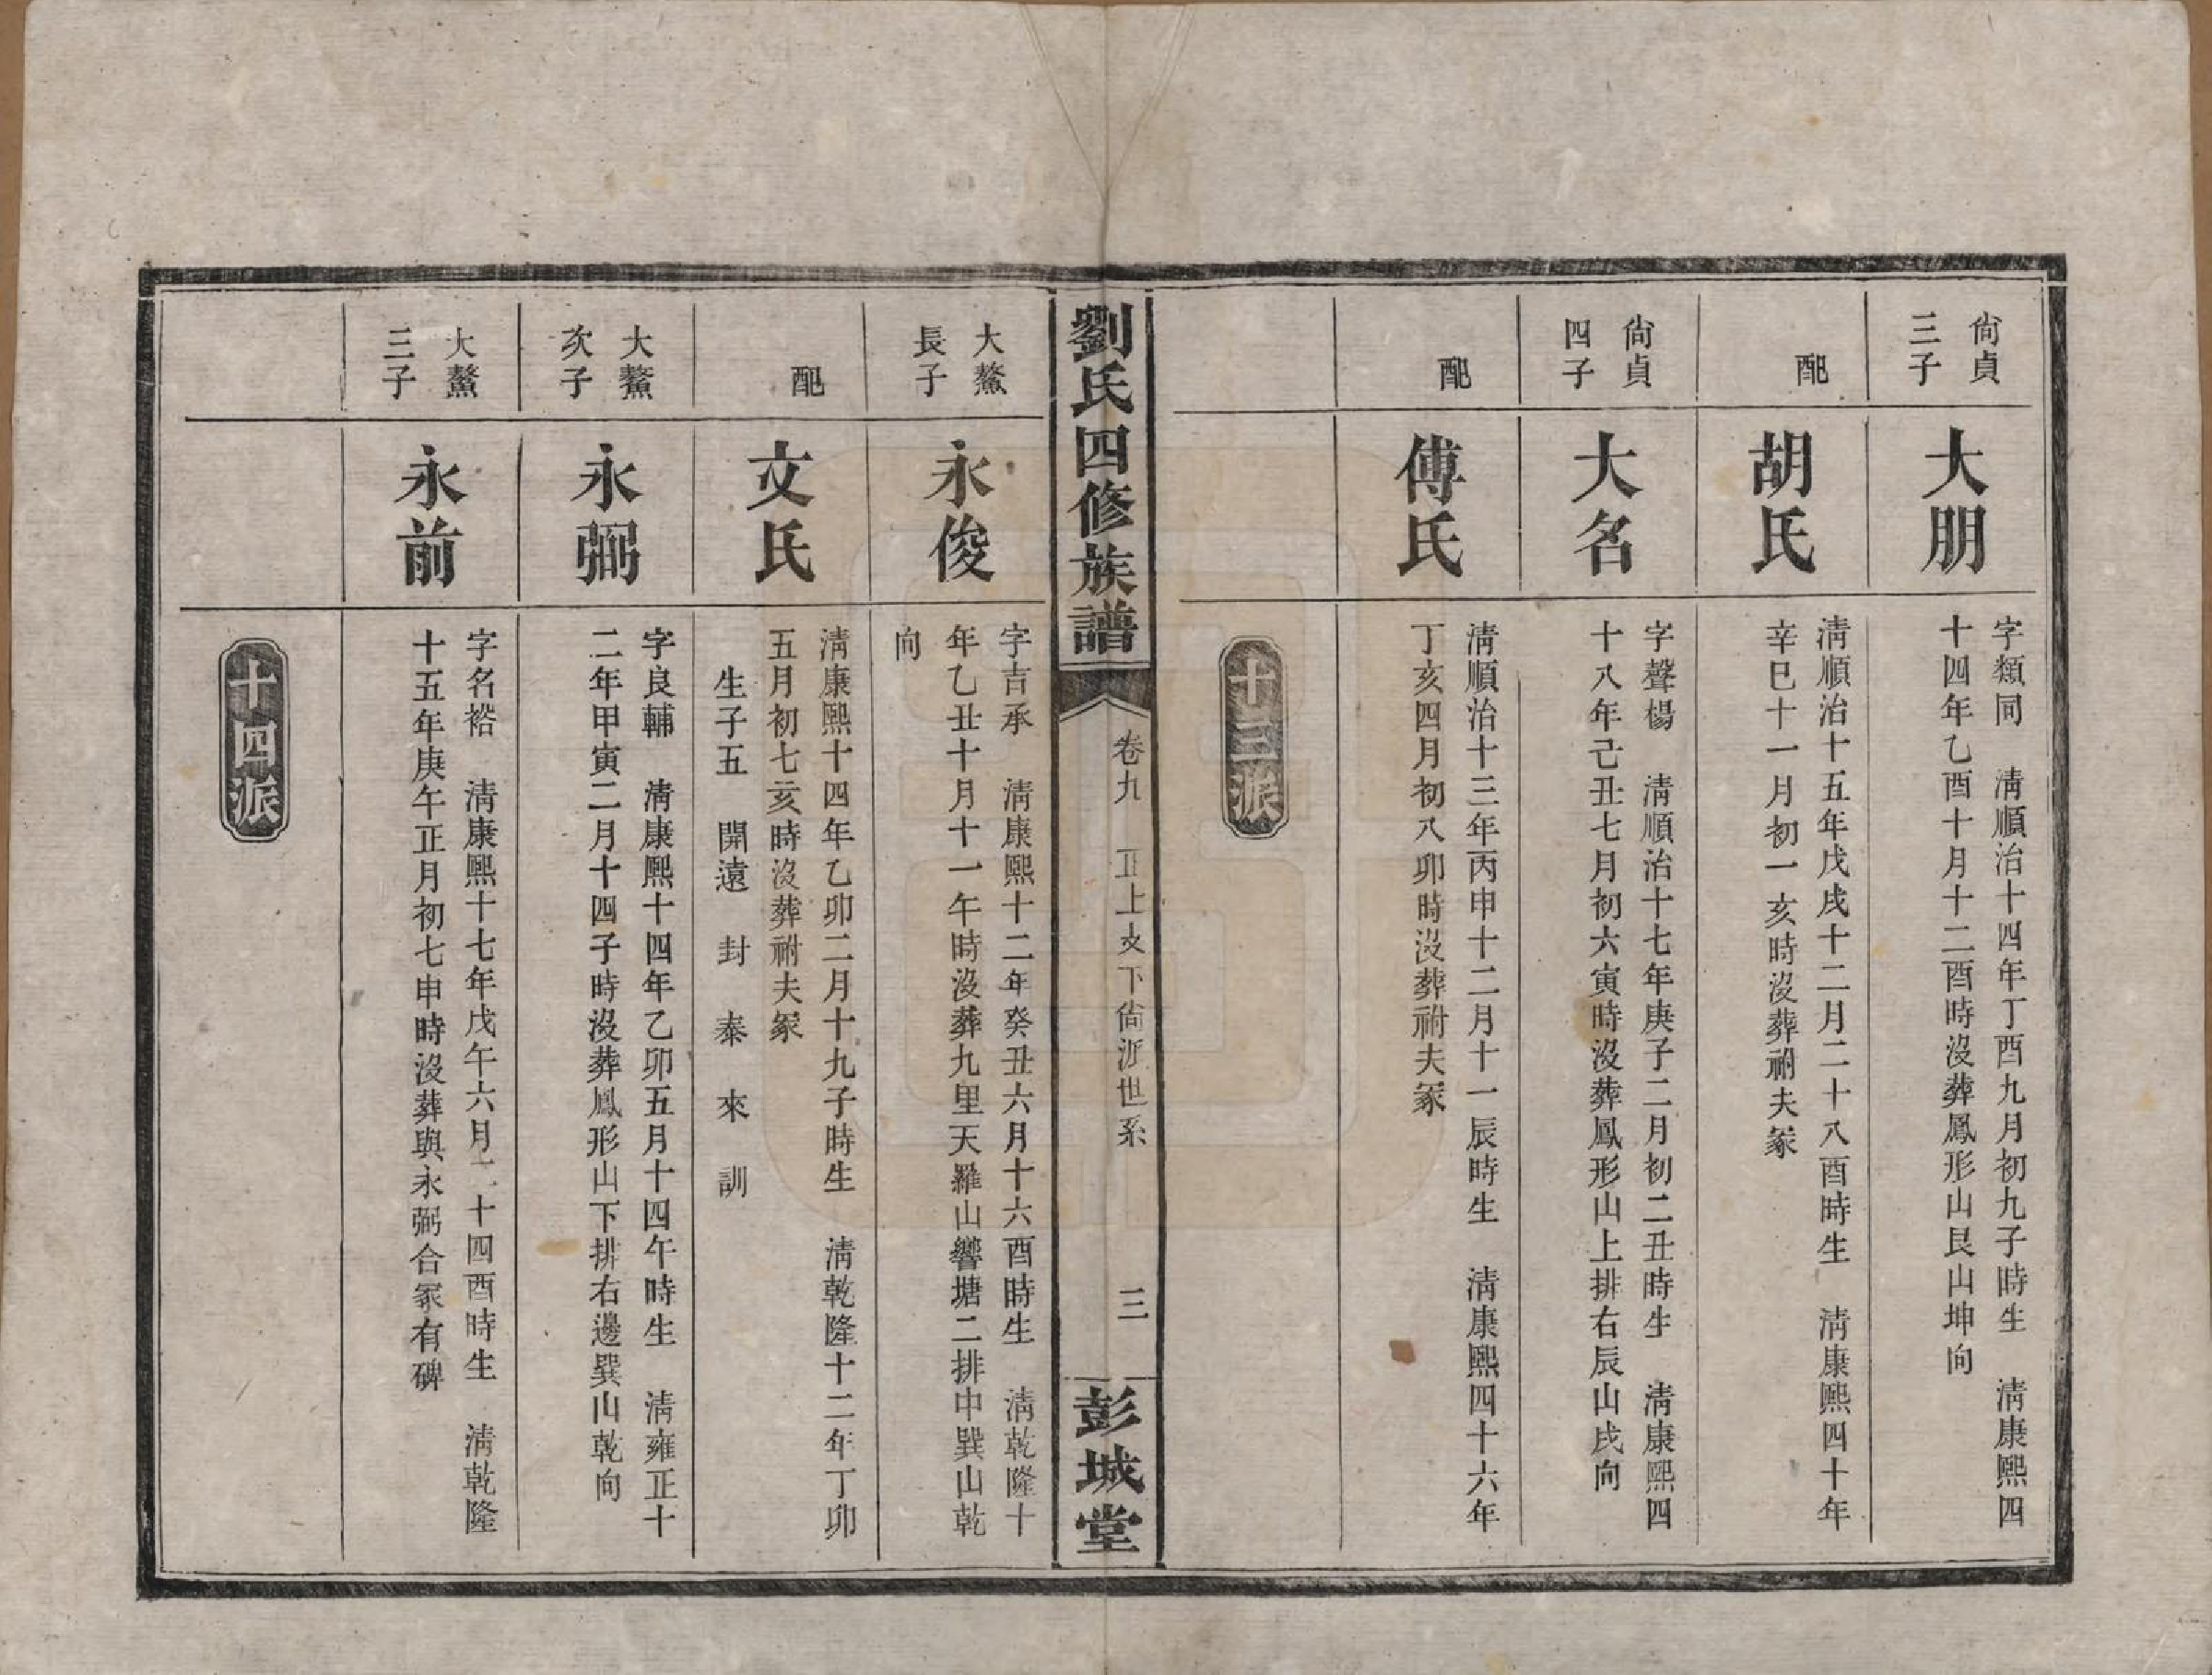 尙貞
三子
大朋
字類同　淸順治十四年丁酉九月初九子時生　淸康熙四
十四年乙酉十月十二酉時沒葬鳳形山艮山坤向
配
胡氏
淸順治十五年戊戌十二月二十八酉時生　淸康熙四十年
辛巳十一月初一亥時沒葬祔夫冢
尙貞
四子
大名
字聲楊　淸順治十七年庚子二月初二丑時生　淸康熙四
十八年己丑七月初六寅時沒葬鳳形山上排右辰山戌向
配
傅氏
淸順治十三年丙申十二月十一辰時生　淸康熙四十六年
丁亥四月初八卯時沒葬祔夫冢
十三派
劉氏四修族譜
卷九　正上文下尙派世系
三
彭城堂
大鰲
長子
永俊
字吉承　淸康熙十二年癸丑六月十六酉時生　淸乾隆十
年乙丑十月十一午時沒葬九里天羅山響塘二排中巽山乾
向
配
文氏
淸康熙十四年乙卯二月十九子時生　淸乾隆十二年丁卯
五月初七亥時沒葬祔夫冢
生子五　開遠　封　秦　來　訓
大鰲
次子
永弼
字良輔　淸康熙十四年乙卯五月十四午時生　淸雍正十
二年甲寅二月十四子時沒葬鳳形山下排右邊巽山乾向
大鰲
三子
永前
字名裕　淸康熙十七年戊午六月二十四酉時生　淸乾隆
十五年庚午正月初七申時沒葬與永弼合冢有碑
十四派